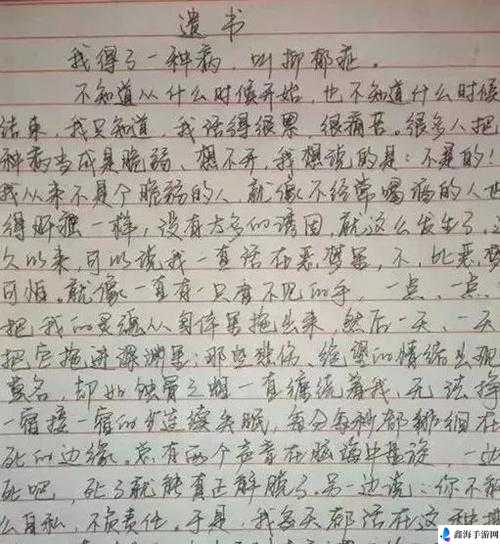 遗书
我得了一种病，叫抑郁症。
不知道从什么时候开始，也不知道什么时候
结束，我只知道，我活得很累，很痛苦。很多人把
种病当成是脆弱、想不开，我想说的是：不是的！
我从来不是个脆弱的人，就像不经常喝酒的人也
得肝癌一样，没有太多的诱因，就这么发生了。
久以来，可以说我一直活在恶梦里，不，比恶梦
可怕。就像一直有一只看不见的手，一点、一点
把我的灵魂从身体里拖出来，然后一天、一天
把它拖进深渊里；那些悲伤、绝望的情绪出现
莫名，却如蚀骨之烟一直缠绕着我，无法挥
一宿接一宿的连续失眠，每分每秒都徘徊在
死的边缘。总有两个声音在脑海中盘旋，一边
死吧，死了就能真正解脱了。另一边说：你不能
么自私，不负责任。于是，我每天都活在这种
鑫海手游网